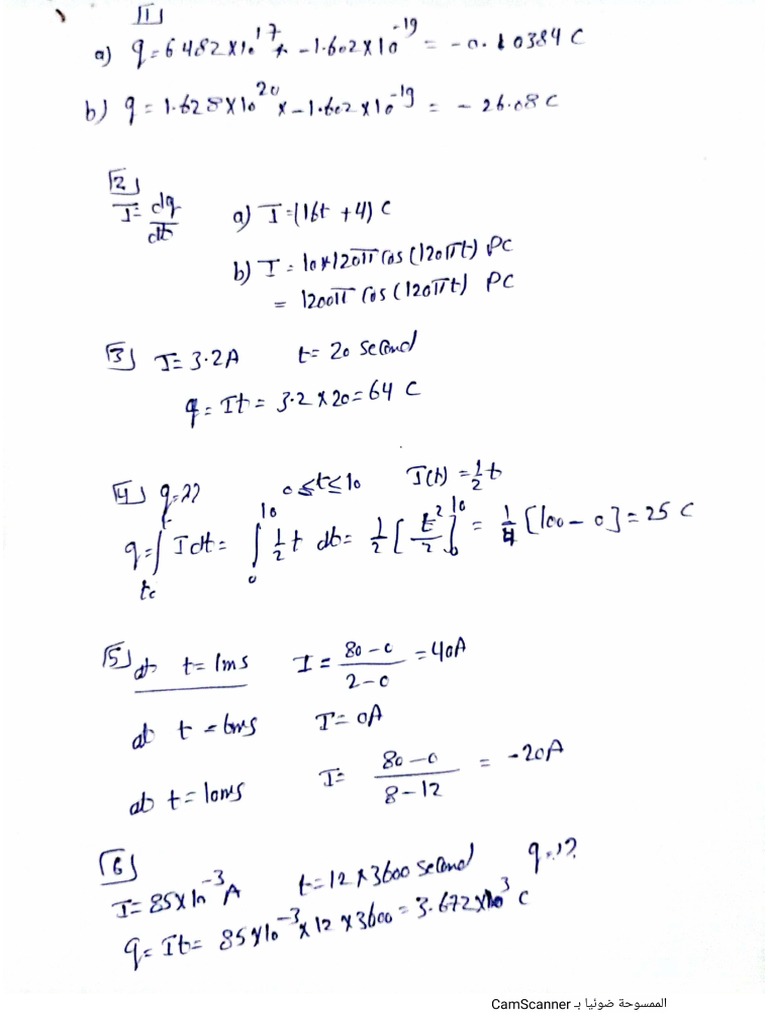 1
a) q = 6482×10^17 × -1.602×10^-19 = -0.10384 C
b) q = 1.628×10^20 × -1.602×10^-19 = -26.08 C
2
I = dq/dt a) I = (16t + 4) C
b) I = 10×120π cos(120πt) PC
= 1200π cos(120πt) PC
3 I = 3.2A t = 20 second
q = It = 3.2 × 20 = 64 C
4 q = ?? 0 ≤ t ≤ 10 I(t) = 1/2 t
q = ∫ I dt = ∫_0^10 1/2 t dt = 1/2 [t^2/2]_0^10 = 1/4 [100 - 0] = 25 C
5 at t = 1ms I = (80 - 0)/(2 - 0) = 40A
at t = 6ms I = 0A
at t = 10ms I = (80 - 0)/(8 - 12) = -20A
6
I = 85×10^-3 A t = 12 × 3600 second q = ??
q = It = 85×10^-3 × 12 × 3600 = 3.672×10^3 C
الممسوحة ضوئيا بـ CamScanner